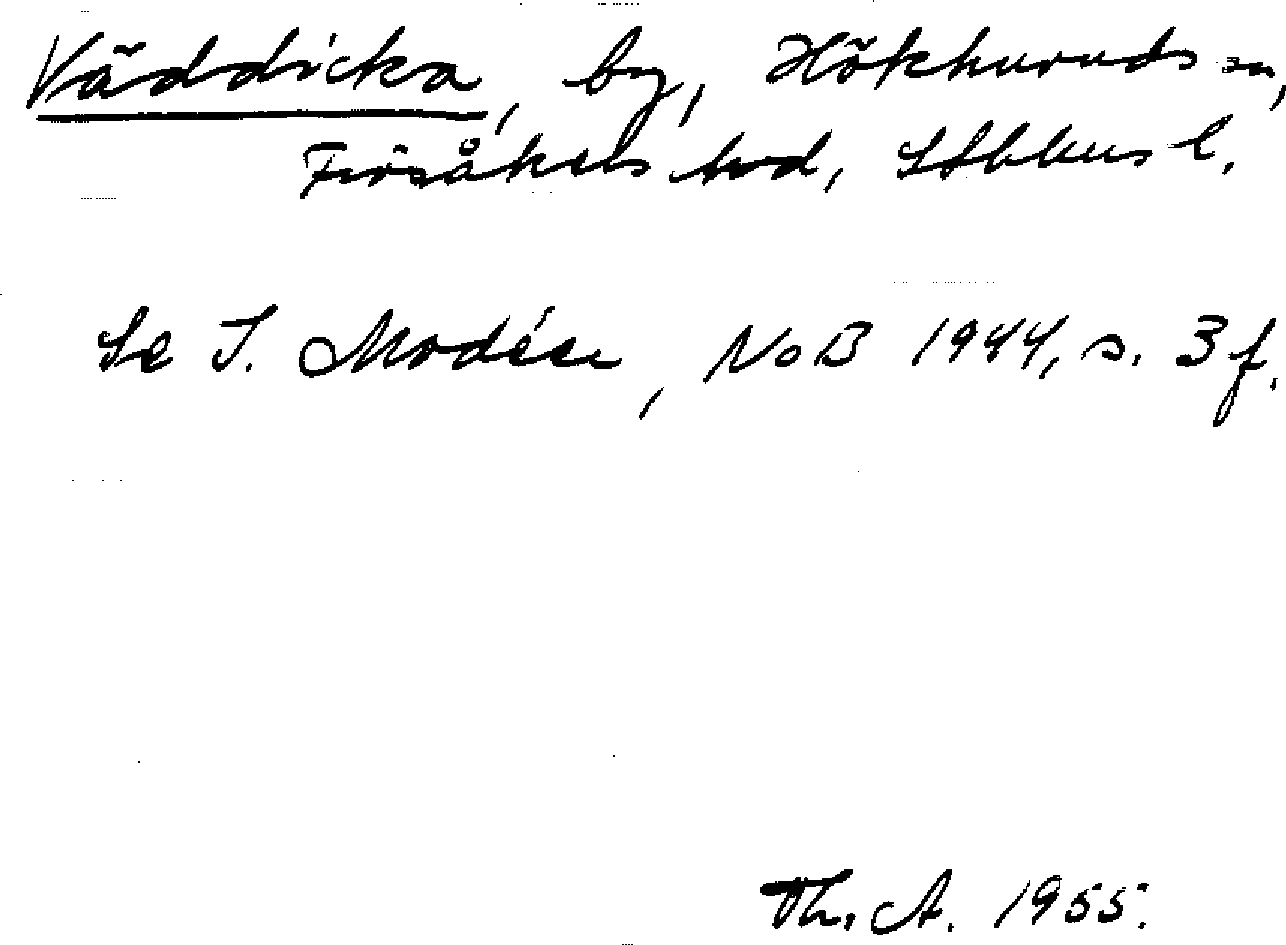 Väddicka, by, Hökhuvuds sn,
Frösåkers hd, Sthlms l.
Se I. Modéer, NoB 1944, s. 3 f.
Th. A. 1955.